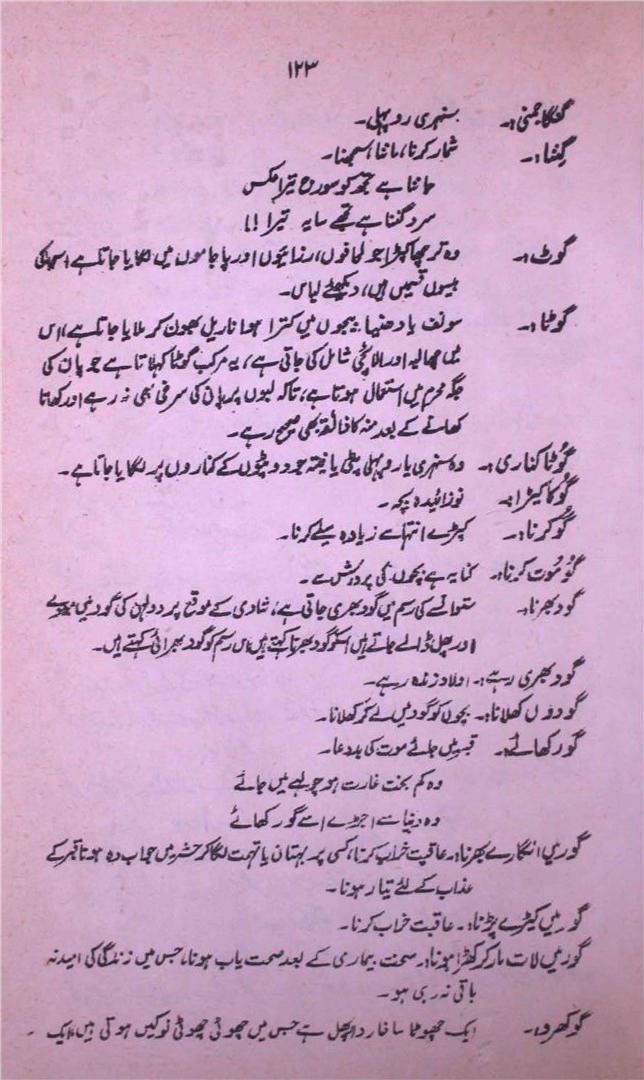 ۱۲۳
گنگا جمنی:۔ سنہری روپہلی۔
گننا:۔ شمار کرنا، ماننا، سمجھنا۔
مانتا ہے تجھ کو سورج تیرا عکس
سرد گنتا ہے تجھے سایہ تیرا !!
گوٹ:۔ وہ ترچھا کپڑا جو لحافوں، رزائیوں اور پاجاموں میں لگایا جاتا ہے اسکی
بیسوں قسمیں ہیں، دیکھئے لباس۔
گوٹا:۔ سونف یا دھنیا بیجوں میں کترا ہوا ناریل بھون کر ملایا جاتا ہے، اس
میں چھالیہ اور الائچی شامل کی جاتی ہے، یہ مرکب گوٹا کہلاتا ہے جو پان کی
جگہ محرم میں استعمال ہوتا ہے، تاکہ لبوں پر پان کی سرخی بھی نہ رہے اور کھانا
کھانے کے بعد منہ کا ذائقہ بھی صحیح رہے۔
گوٹا کناری:۔ وہ سنہری یا روپہلی پٹی یا فیتہ جو دوپٹوں کے کناروں پر لگایا جاتا ہے۔
گُو کا کیڑا:۔ نوزائیدہ بچہ۔
گُو کرنا:۔ کپڑے انتہا سے زیادہ میلے کرنا۔
گُو مُوت کرنا:۔ کنایہ ہے بچوں کی پرورش سے۔
گود بھرنا:۔ ستوانسے کی رسم میں گود بھری جاتی ہے، شادی کے موقع پر دولہن کی گود میں میوے
اور پھل ڈالے جاتے ہیں اسکو گود بھرنا کہتے ہیں اس رسم کو گود بھرائی کہتے ہیں۔
گود بھری رہے:۔ اولاد زندہ رہے۔
گودوں کھلانا:۔ بچوں کو گود میں لے کر کھلانا۔
گور کھائے:۔ قبر میں جائے موت کی بددعا۔
وہ کم بخت غارت ہو چولہے میں جائے
وہ دنیا سے اجڑے اسے گور کھائے
گور میں انگارے بھرنا:۔ عاقبت خراب کرنا، کسی پر بہتان یا تہمت لگا کر حشر میں جواب دہ ہونا قبر کے
عذاب کے لئے تیار ہونا۔
گور میں کیڑے پڑنا:۔ عاقبت خراب کرنا۔
گور میں لات مار کر کھڑا ہونا:۔ سخت بیماری کے بعد صحت یاب ہونا، جس میں زندگی کی امید نہ
باقی نہ رہی ہو۔
گوکھرو:۔ ایک چھوٹا سا خار دار پھل ہے جس میں چھوٹی چھوٹی نوکیں ہوتی ہیں، ایک